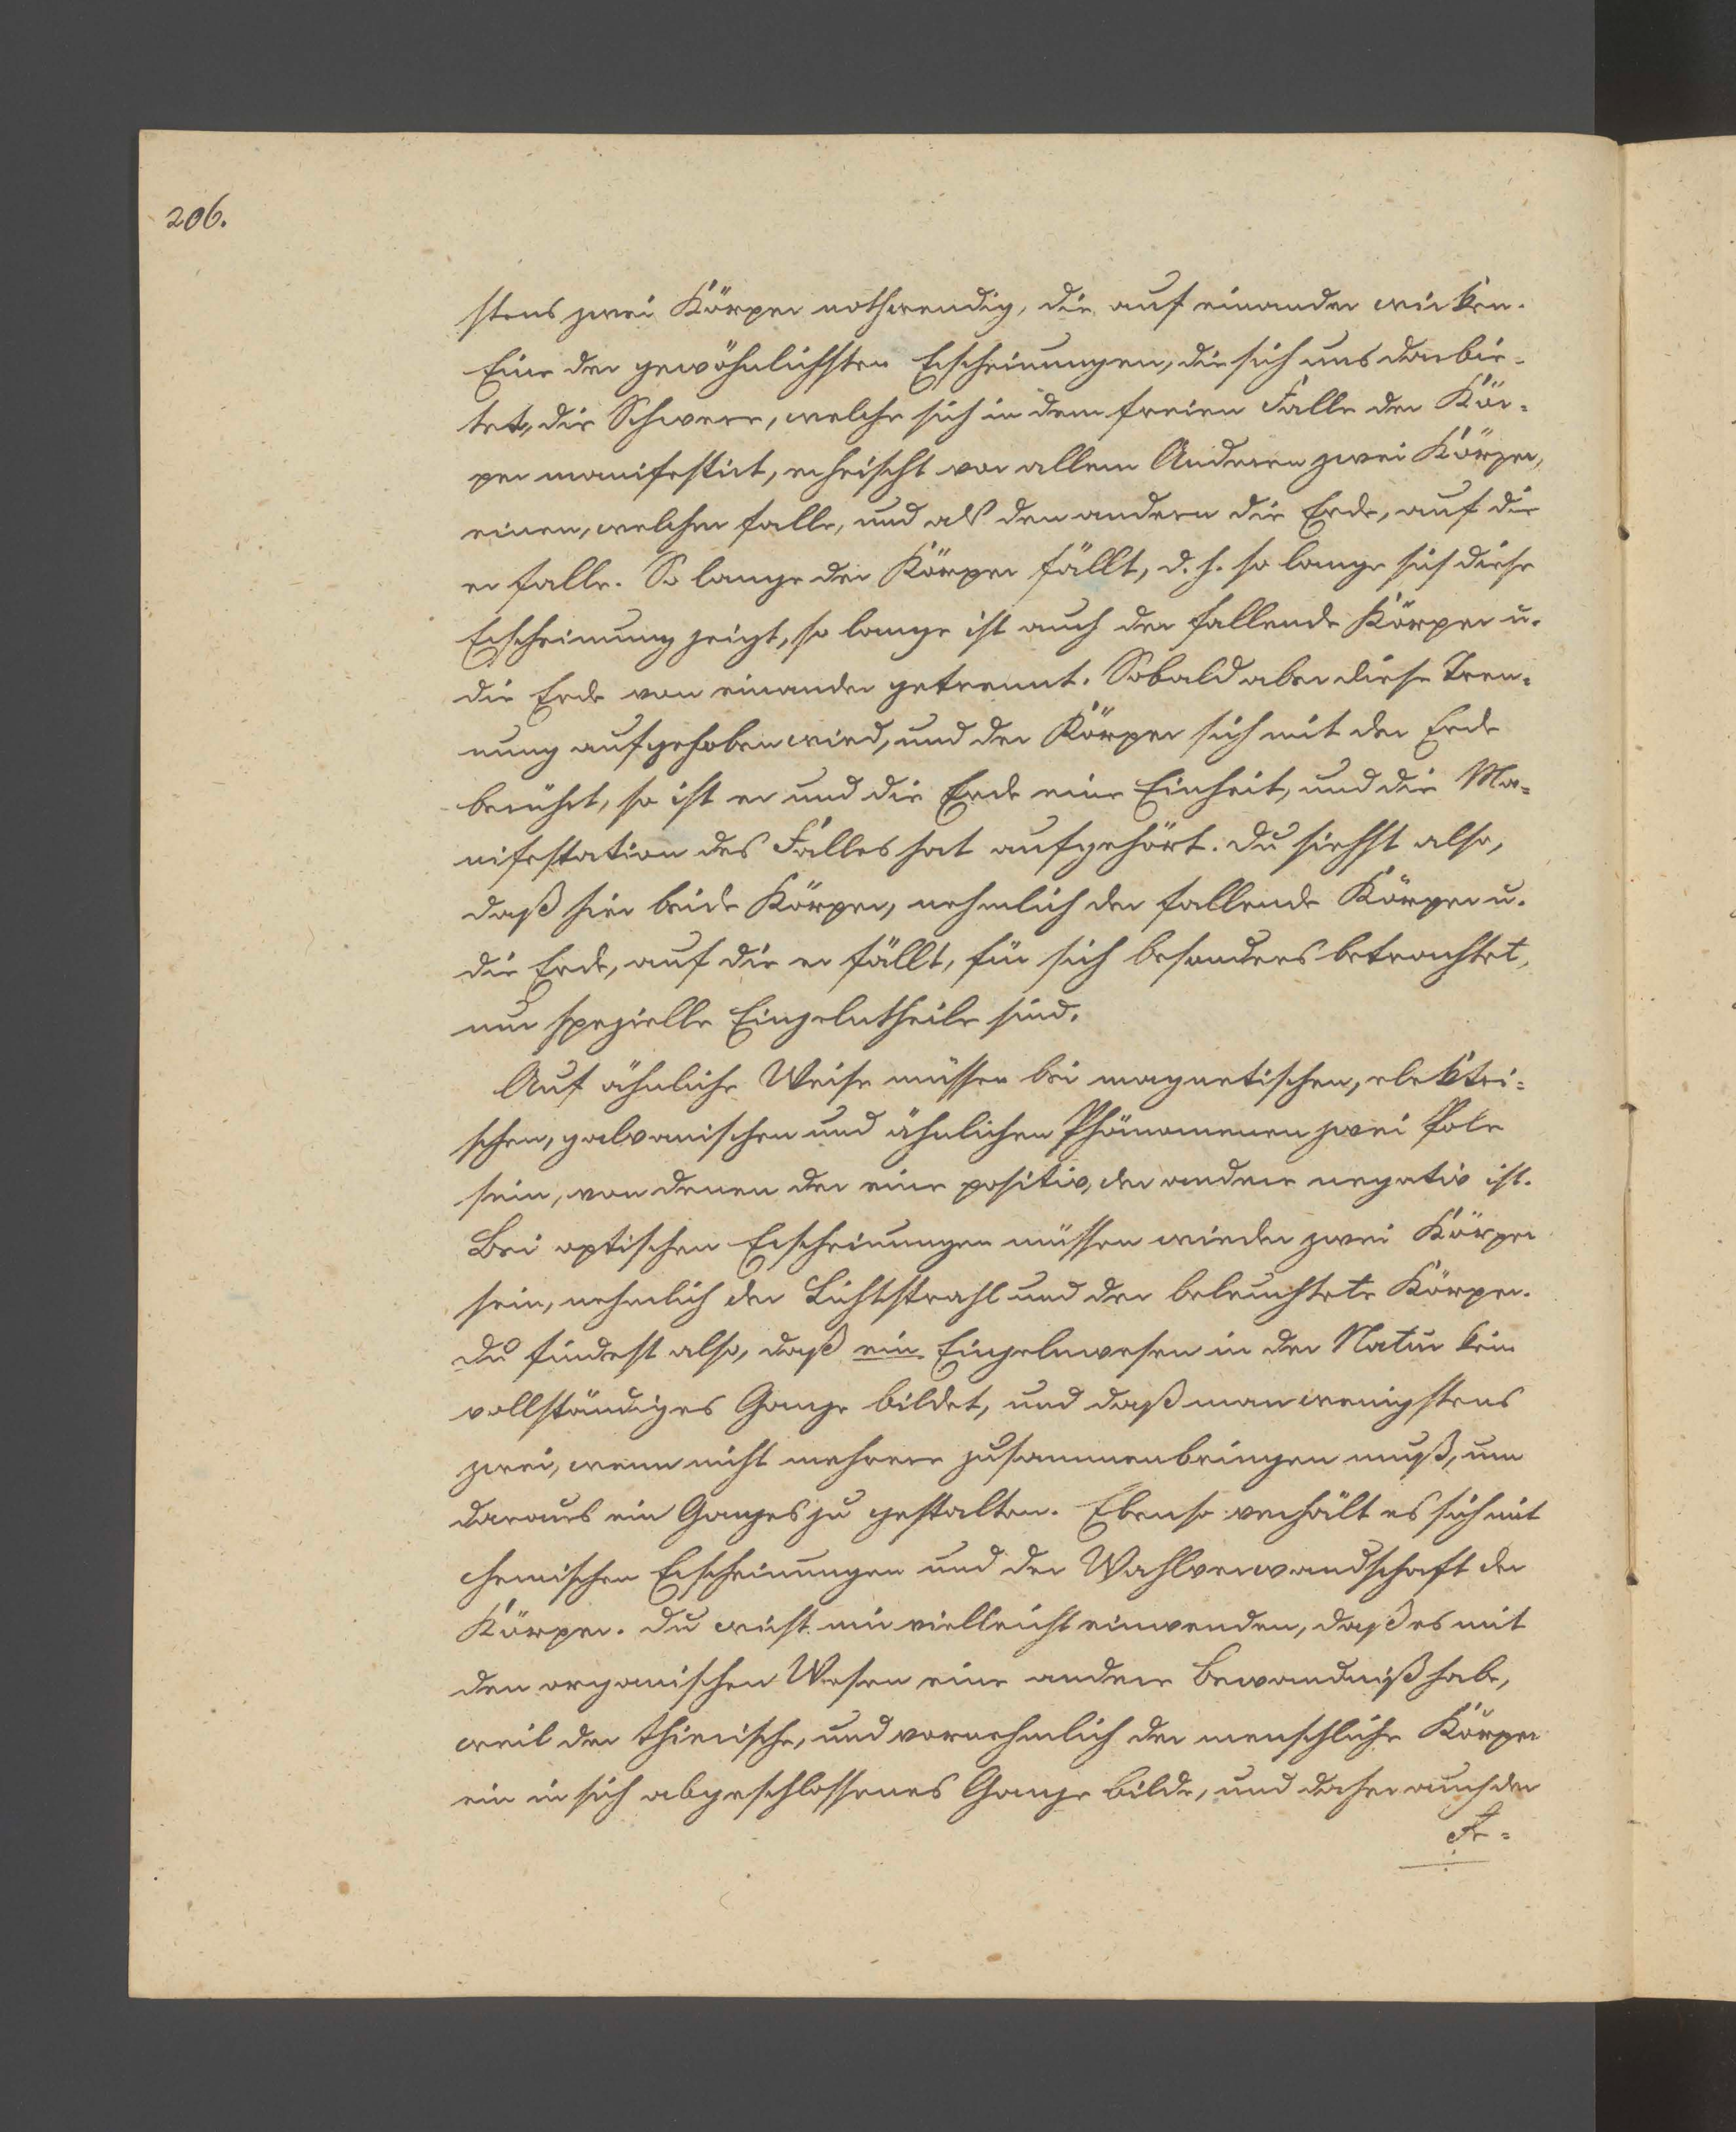 206.
stens zwei Körper nothwendig, die auf einander wirken.
Eine der gewöhnlichsten Erscheinungen, die sich uns darbie-
tet, die Schwere, welche sich in dem freien Falle der Kör-
per manifestirt, erheischt vor allem Anderen zwei Körper,
einen, welcher falle, und als den andern die Erde, auf die
er falle. So lange der Körper fällt, d. h. so lange sich diese
Erscheinung zeigt, so lange ist auch der fallende Körper u.
die Erde von einander getrennt. Sobald aber diese Tren-
nung aufgehoben wird, und der Körper sich mit der Erde
berührt, so ist er und die Erde eine Einheit, und die Ma-
nifestation des Falles hat aufgehört. Du siehst also,
daß hier beide Körper, nehmlich der fallende Körper u.
die Erde, auf die er fällt, für sich besonders betrachtet,
nur spezielle Einzelntheile sind.
Auf ähnliche Weise müssen bei magnetischen, elektri-
schen, galvanischen und ähnlichen Phänomenen zwei Pole
sein, von denen der eine positiv, der andere negativ ist.
Bei optischen Erscheinungen müssen wieder zwei Körper
sein, nehmlich der Lichtstrahl und der beleuchtete Körper.
Du findest also, daß ein Einzelnwesen in der Natur kein
vollständiges Ganze bildet, und daß man wenigstens
zwei, wenn nicht mehrere zusammenbringen muß, um
daraus ein Ganzes zu gestalten. Ebenso verhält es sich mit
chemischen Erscheinungen und der Wahlverwandschaft der
Körper. Du wirst mir vielleicht einwenden, daß es mit
den organischen Wesen eine andere Bewandniß habe,
weil der thierische, und vornehmlich der menschliche Körper
ein in sich abgeschlossenes Ganze bilde, und daher auch der